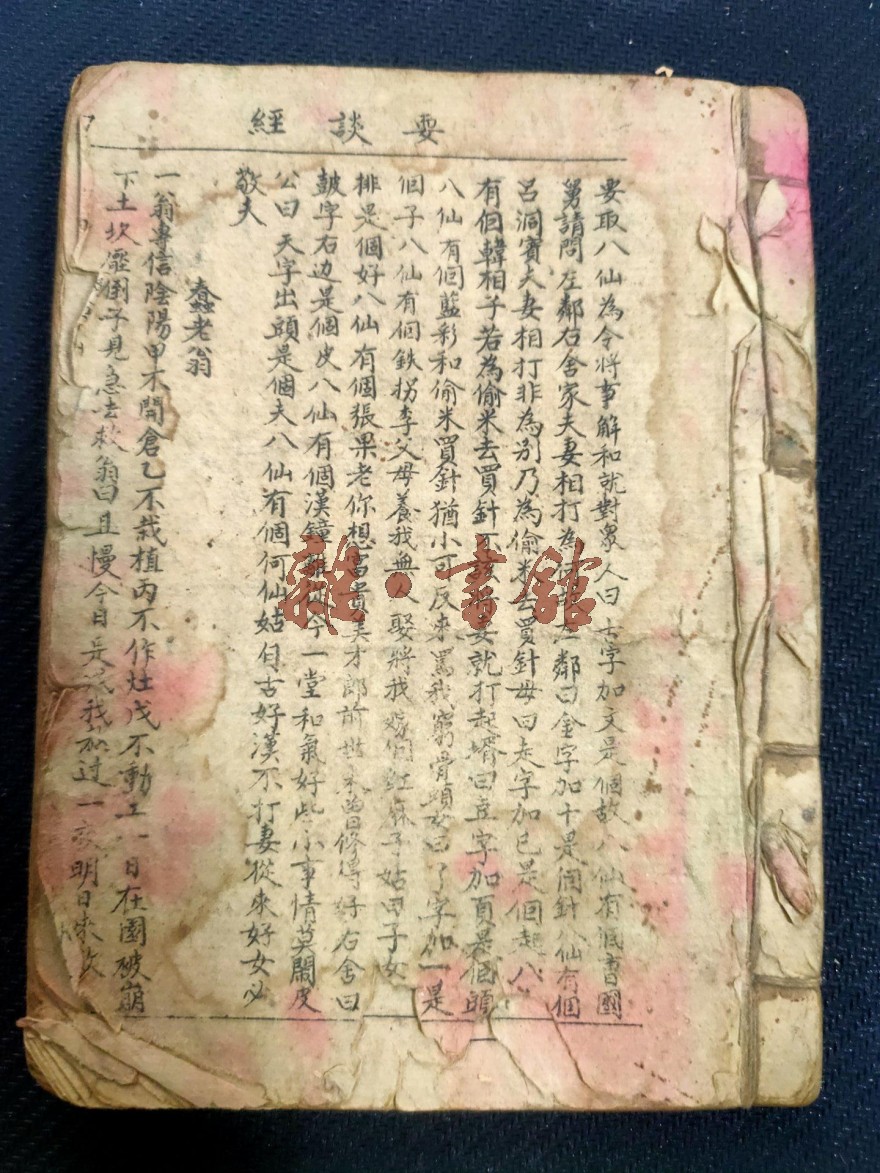 耍談經
要取八仙為令將事解和就對眾人曰古字加文是個故八仙有個曹國
舅請問左鄰右舍家夫妻相打為何左鄰曰金字加十是個針八仙有個
呂洞賓夫妻相打非為別乃為偷米去買針母曰走字加巳是個起八仙
有個韓相子若為偷米去買針不該妻就打起壻曰豆字加頁是個頭
八仙有個藍彩和偷米買針猶小可反來罵我窮骨頭女曰了字加一是
個子八仙有個鉄拐李父母養我無人娶將我嫁個子姑曰子女
排是個好八仙有個張果老你想富貴美才郎前世未曾修得好右舍曰
皷字右边是個皮八仙有個漢鐘離今一堂和氣好些小事情莫鬧皮
公曰天字出頭是個夫八仙有個何仙姑自古好漢不打妻從來好女必
敬夫
蠢老翁
一翁專信陰陽甲不開倉乙不栽植丙不作灶戊不動土一日在園破崩
下土坎壓倒子見急去救翁曰且慢今日是我加过一夜明日來
雜·書館